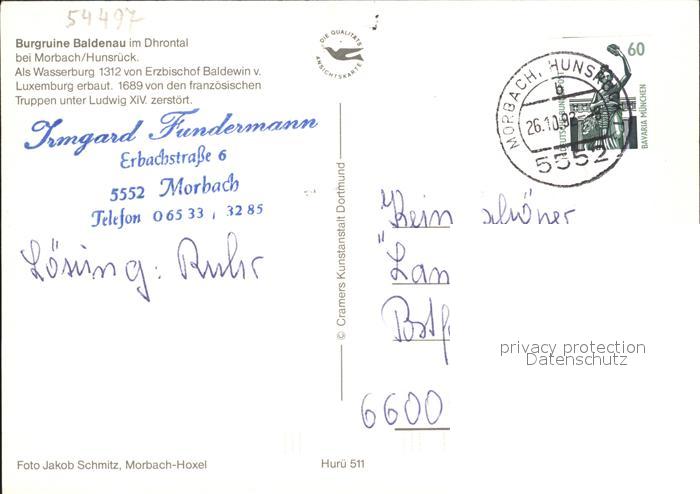 54497
Burgruine Baldenau im Dhrontal
bei Morbach/Hunsrück.
Als Wasserburg 1312 von Erzbischof Baldewin v.
Luxemburg erbaut. 1689 von den französischen
Truppen unter Ludwig XIV. zerstört.
DIE QUALITÄTS
ANSICHTSKARTE
Irmgard Fundermann
Erbachstraße 6
5552 Morbach
Telefon 0 65 33 / 32 85
Lösung: Ruhr
© Cramers Kunstanstalt Dortmund
60
DEUTSCHE BUNDESPOST
BAVARIA MÜNCHEN
MORBACH, HUNSRÜCK
b
26.10.
5552
"Kein schöner
Lan
Postf
6600
privacy protection
Datenschutz
Foto Jakob Schmitz, Morbach-Hoxel
Hurü 511